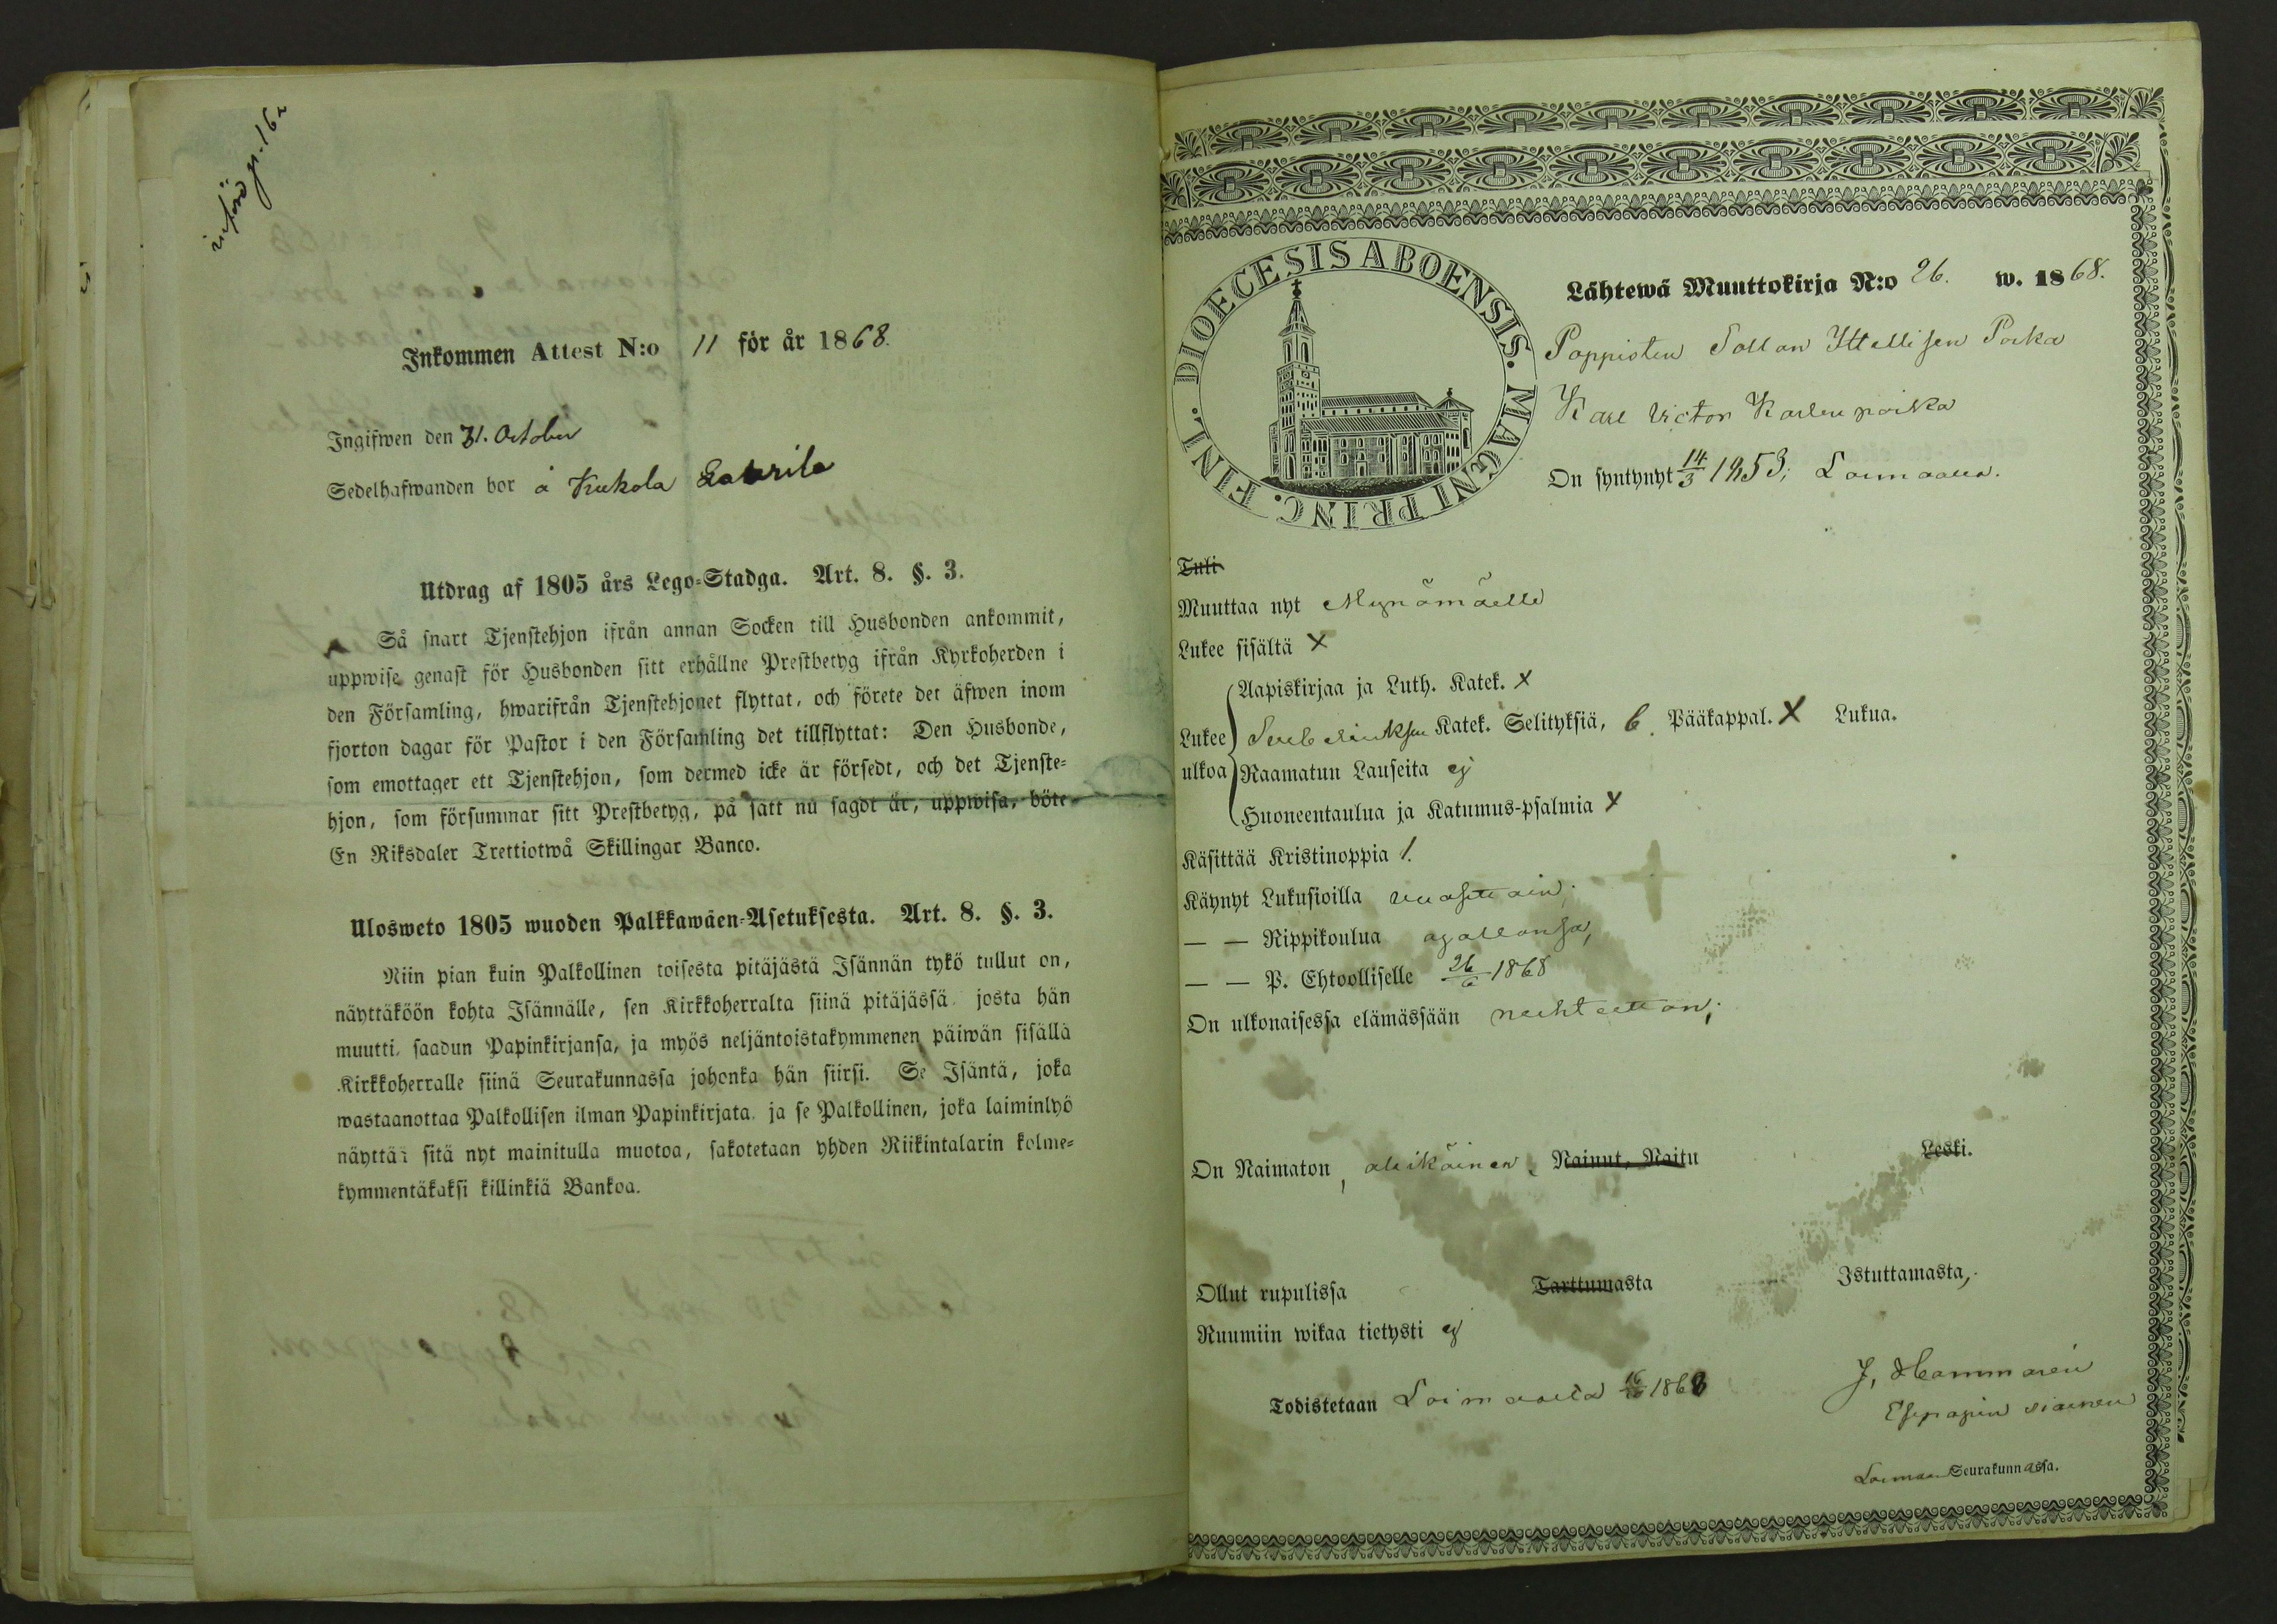 införd p. 162
Inkommen Attest N:o 11 för år 1868.
Ingifwen den 31. October
Sedelhafwanden bor å Kukola
Utdrag af 1805 års Lego-Stadga. Art. 8. §. 3.
Så snart Tjenstehjon ifrån annan Socken till Husbonden ankommit,
uppwise genast för Husbonden sitt erhållne Prestbetyg ifrån Kyrkoherden i
den Församling, hwarifrån Tjenstehjonet flyttat, och förete det äfwen inom
fjorton dagar för Pastor i den Församling det tillflyttat: Den Husbonde,
som emottager ett Tjenstehjon, som dermed icke är försedt, och det Tjenste-
hjon, som försummar sitt Prestbetyg, på sätt nu sagdt är, uppwisa, böte
En Riksdaler Trettiotwå Skillingar Banco.
Ulosweto 1805 wuoden Palkkawäen-Asetuksesta. Art. 8. §. 3.
Niin pian kuin Palkollinen toisesta pitäjästä Isännän tykö tullut on,
näyttäköön kohta Isännälle, sen Kirkkoherralta siinä pitäjässä, josta hän
muutti, saadun Papinkirjansa, ja myös neljäntoistakymmenen päiwän sisällä
Kirkkoherralle siinä Seurakunnassa johonka hän siirsi. Se Isäntä, joka
wastaanottaa Palkollisen ilman Papinkirjata, ja se Palkollinen, joka laiminlyö
näyttää sitä nyt mainitulla muotoa, sakotetaan yhden Riikintalarin kolme-
kymmentäkaksi killinkiä Bankoa.
DIOECESIS ABOENSIS. MAGNI PRINC. FINL.
Lähtewä Muuttokirja N:o 26. w. 1868.
Poppisten Sollan Ittellisen Poika
Karl Victor Karlenpoika
On syntynyt 14/3 1853; Loimaalla.
Tuli
Muuttaa nyt Mynämäelle
Lukee sisältä x
Aapiskirjaa ja Luth. Katek. x
Lukee ulkoa
Katek. Selityksiä, 6. Pääkappal. X Lukua.
Raamatun Lauseita ej
Huoneentaulua ja Katumus-psalmia x
Käsittää Kristinoppia 1.
Käynyt Lukusioilla vuosittain;
— — Rippikoulua ajallansa,
— — P. Ehtoolliselle 26/6 1868
On ulkonaisessa elämässään nuhteetton;
On Naimaton, alaikäinen. Nainut, Naitu Leski.
Ollut rupulissa Tarttumasta Istuttamasta,
Ruumiin wikaa tietysti ej
Todistetaan Loimaalla 16/10 1868
J. Hammarén
Esipapin siainen
Loimaan Seurakunnassa.